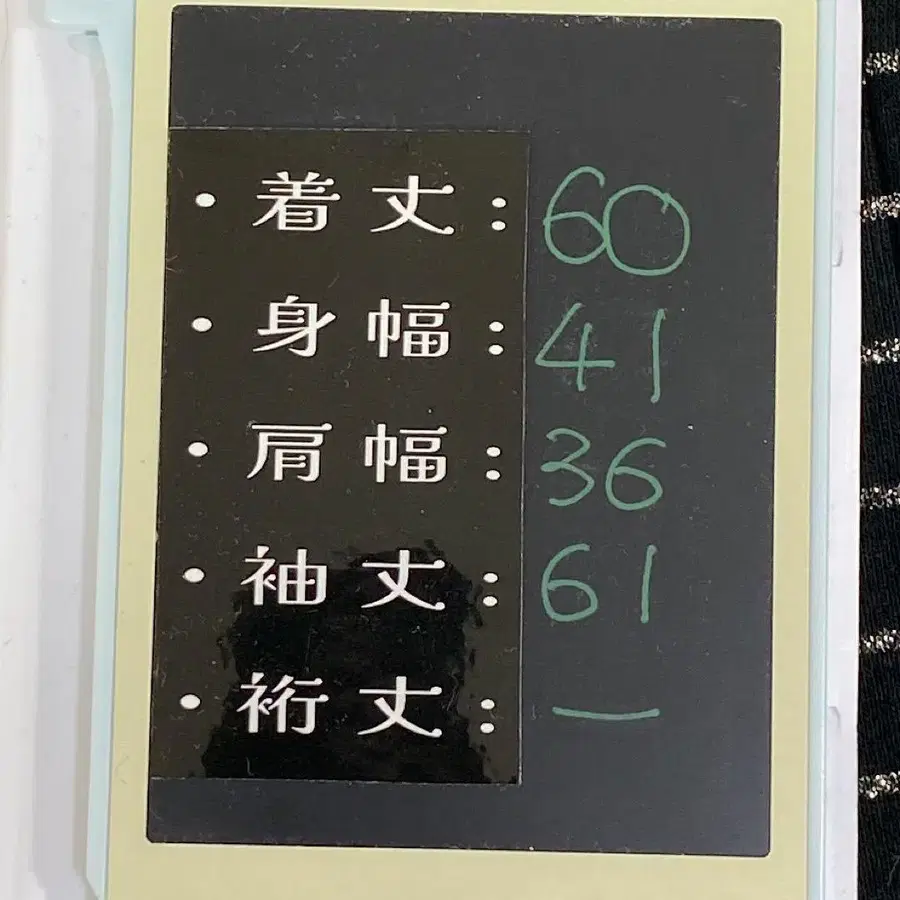 ・着丈：60
・身幅：41
・肩幅：36
・袖丈：61
・裄丈：—